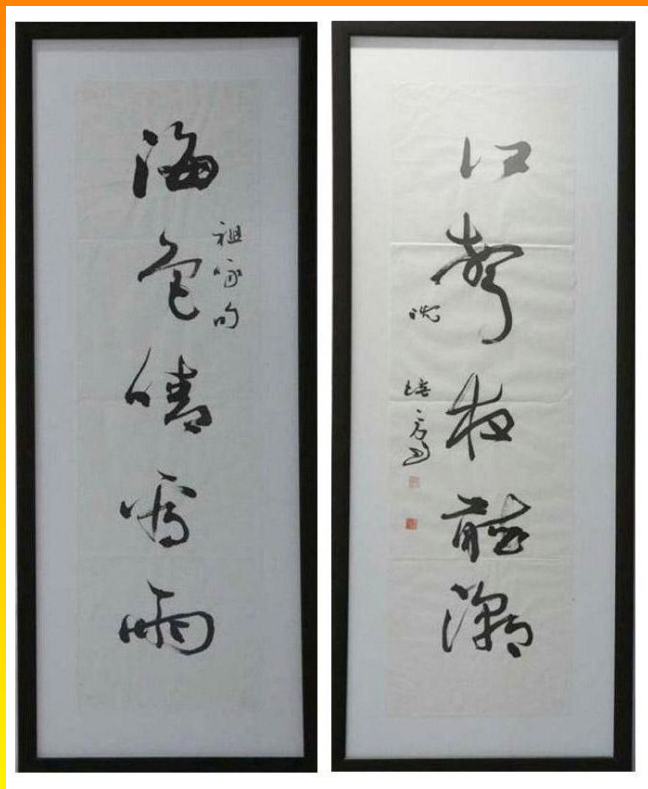 海色晴看雨
祖咏句
江聲夜聽潮
沈培方書